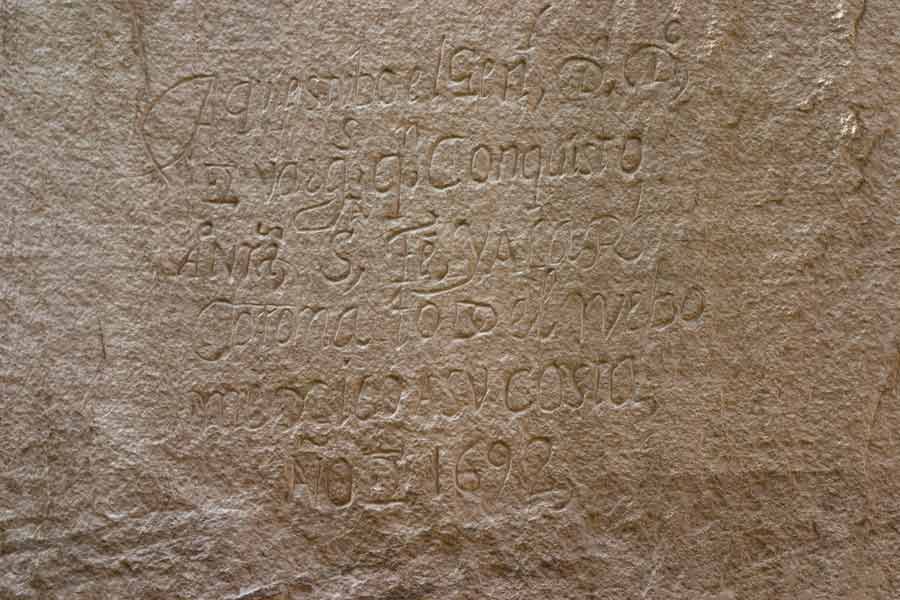 Aqui estubo el Genl, D. Do,
De Vargs, qn Conquisto
a Nra, Sa, Fe, y A la Rl
Corona todo el Nuebo
mexico A SU COSTA,
AÑO De 1692